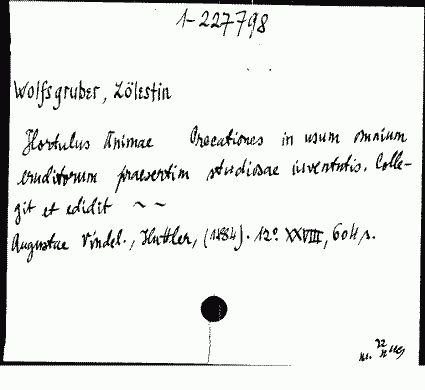 1-227798
Wolfsgruber, Zölestin
Hortulus Animae Precationes in usum omnium
eruditorum praesertim studiosae iuventutis. Colle-
git et edidit ~ ~
Augustae Vindel., Huttler, (1884). 12º. XXVIII, 604 s.